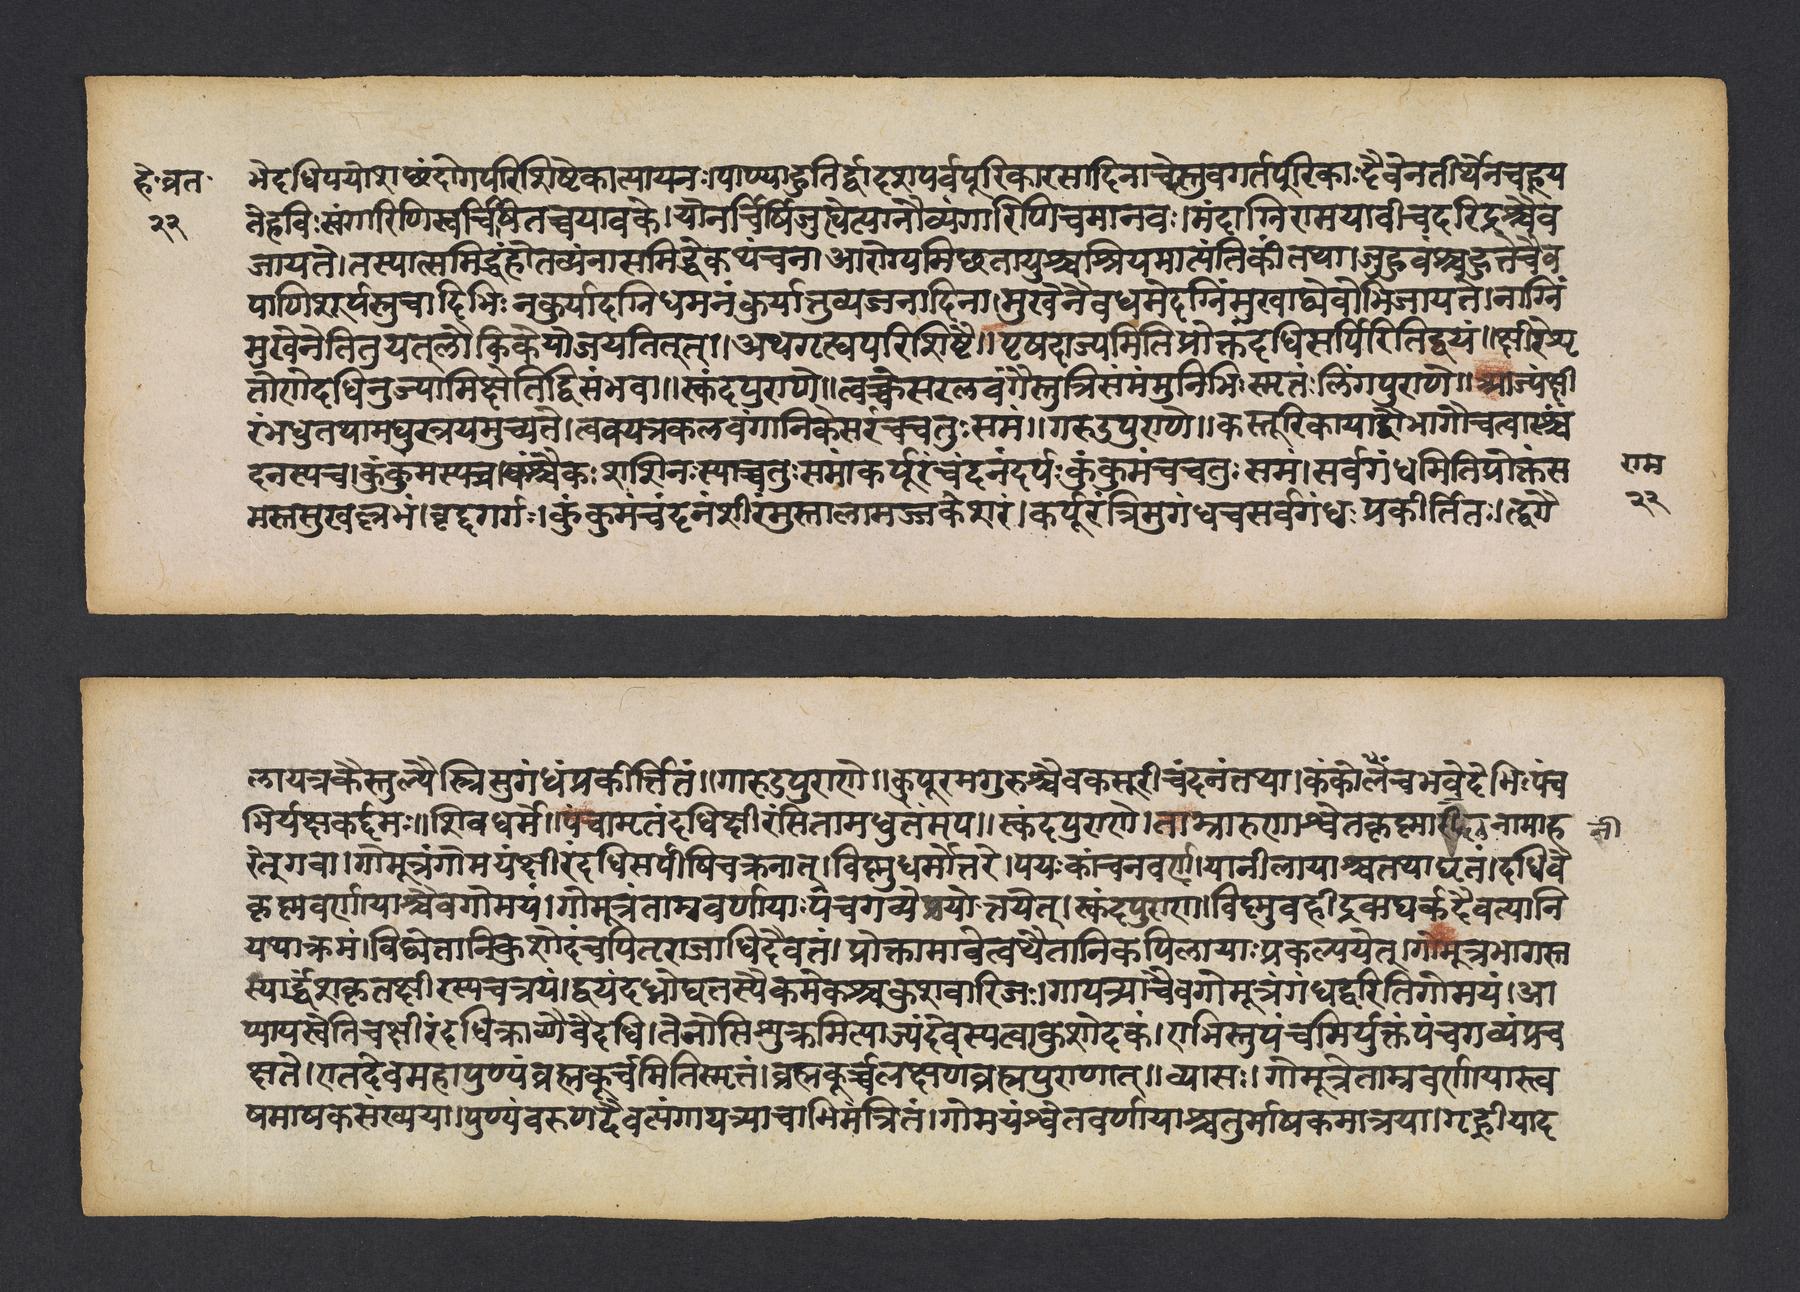 हे॰व्रत॰
२२
भेदधिपयोश छंदोगपरिशिष्टेकात्यायनः।पाण्याहुतिर्द्वादशपर्वपूरिकारसादिनाचेत्स्रुवगर्तपूरिकाःदैवेनतीर्थेनचहूय
तेहविःस्वंगारिणिस्वर्चिषितच्चपावके।योनर्चिषिजुहोत्यग्नौव्यंगारिणिचमानवः।मंदाग्निरामयावीचदरिद्रश्चैव
जायते।तस्मात्समिद्धेहोतव्यंनासमिद्धेकथंचन।आरोग्यमिछतायुश्चश्रियमात्यंतिकींतथा।जुहुवंश्चहुतेचैव
पाणिशूर्पस्रुचादिभिः नकुर्यादग्निधमनंकुर्यात्तुव्यजनादिना।मुखेनैवधमेदग्निंमुखाद्ध्येषोभिजायते।नाग्निं
मुखेनेतितुयत्लौकिकेयोजयतितत्।।अथगृह्यपरिशिष्टे।।पृषदाज्यमितिप्रोक्तंदधिसर्पिरितिद्वयं।।क्षीरेशृ
तोष्णेदधिनुज्यामिक्षेतिद्विसंभव।।स्कंदपुराणे।।त्वक्केसरलवंगैस्तुत्रिसंमंमुनिभिःस्मृतंःलिंगपुराणे।।आज्यंक्षी
रंमधुतथामधुरत्रयमुच्यते।त्वक्पत्रकलवंगानिकेसरंचचतुःसमं।।गरुडपुराणे।।कस्तूरिकायाद्वौभागौचत्वारश्चं
दनस्यच।कुंकुमस्यत्रयश्चैकःशशिनःस्याच्चतुःसमं।कर्पूरंचंदनंदर्पःकुंकुमंचचतुःसमं।सर्वगंधमितिप्रोक्तंस
मस्तसुखल्लभं।वृद्दगर्गः।कुंकुमंचंदनंशीरंमुस्तालामज्जकेशरं।कर्पूरंत्रिसुगंधचसर्वगंधःप्रकीर्तितः।त्वगे
राम
२२
लापत्रकैस्तुल्यैस्त्रिसुगंधंप्रकीर्त्तितं।।गारुडपुराणे।।कर्पूरमगुरुश्चैवकसूरीचंदनंतथा।कंकोलंचभवेदेभिःपंच
भिर्यक्षकर्दमः।।शिवधर्मे।।पंचामृतंदधिक्षीरंसितामधुतंमृप।।स्कंदपुराणे।ताम्रारुणाश्वेतकृष्मानामाह
रेत्तुगवा।गोमूत्रंगोमयंक्षीरंदधिसर्पीषिचक्रनात्।विष्णुधर्मोत्तरे।पयःकांचनवर्णायानीलायाश्चतथाघृतं।दधिवै
कृष्मवर्णायाश्चैवगोमयं।गोमूत्रंताम्रवर्णायाःपंचगव्येप्रयोजयेत्।स्कंदपुराणे।विष्णुवह्नींदुवाय्वर्कदैवत्यानि
यथाक्रमं।विद्ध्येतानिकुशोदंचपितृराजाधिदैवतं।प्रोक्तामावेत्वथैतानिकपिलायाःप्रकल्पयेत्।गोमूत्रभागस्त
स्यार्द्धंशकृतक्षीरस्यचत्रयं।द्वयंदध्नोघृतस्यैकमेकश्चकुशवारिजः।गायत्र्याचैवगोमूत्रंगंधद्वरितिगोमयं।आ
प्यायस्वेतिचक्षीरंदधिक्राव्णैवैदधि।तेजोसिशुक्रमित्याज्यंदेवस्यत्वाकुशोदकं।एभिस्तुपंचमिर्युक्तंपंचगव्यंप्रच
क्षते।एतदेवमहापुण्यंब्रह्मकूर्चमितिस्मृतं।ब्रह्मकूर्च्चलक्षेणब्रह्मपुराणात्।।व्यासः।गोमूत्रेताम्रवर्णायास्त्व
षमाषकसंख्यया।पुण्यंवरुणदैवत्यंगायत्र्याचाभिमंत्रितं।गोमयंश्वेतवर्णायाश्चतुर्माषकमात्रया।गृह्णीयाद